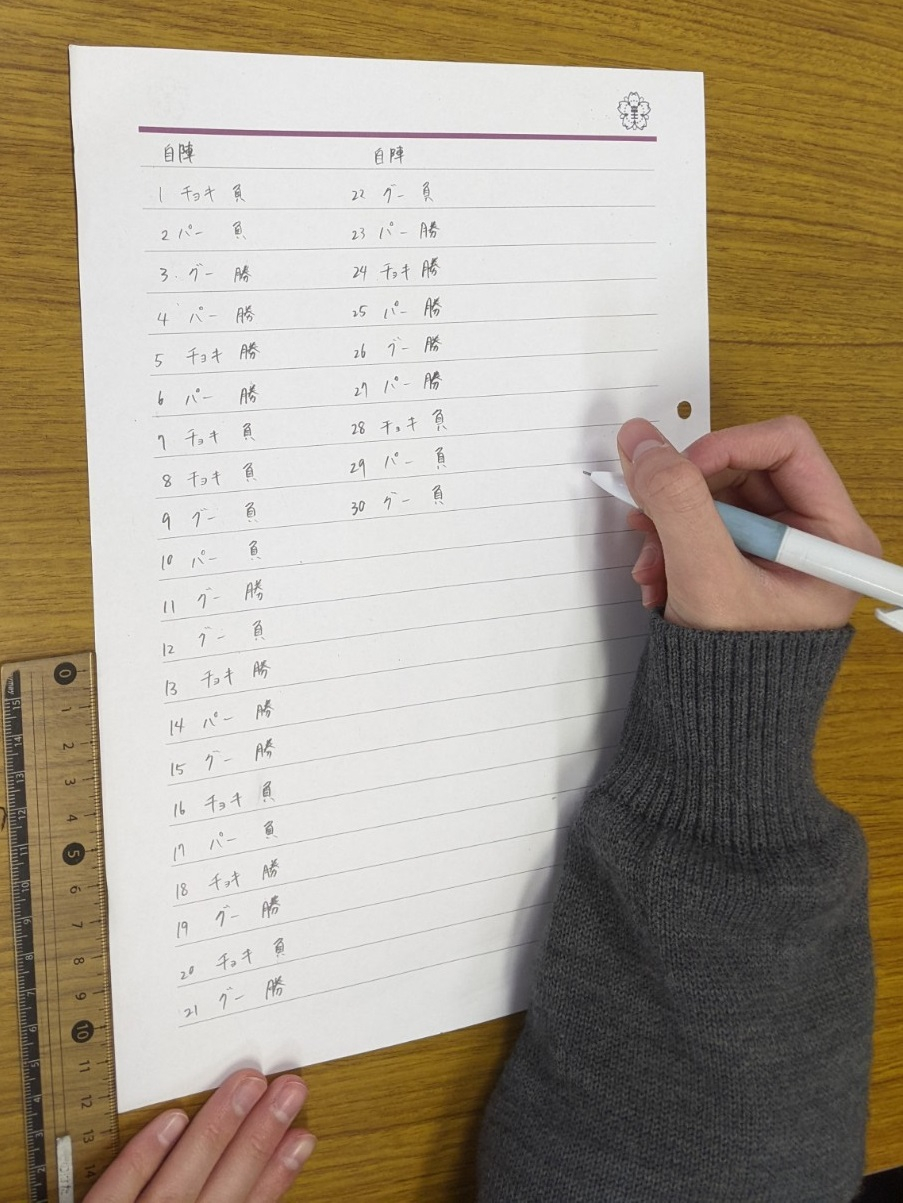 自陣
1 チョキ 負
2 パー 負
3. グー 勝
4 パー 勝
5 チョキ 勝
6 パー 勝
7 チョキ 負
8 チョキ 負
9 グー 負
10 パー 負
11 グー 勝
12 グー 負
13 チョキ 勝
14 パー 勝
15 グー 勝
16 チョキ 負
17 パー 負
18 チョキ 勝
19 グー 勝
20 チョキ 負
21 グー 勝
自陣
22 グー 負
23 パー 勝
24 チョキ 勝
25 パー 勝
26 グー 勝
27 パー 勝
28 チョキ 負
29 パー 負
30 グー 負
0 1 2 3 4 5 6 7 8 9 10 11 12 13 14
15 14 13 12 11 10 9 8 7 6 5 4 3 2